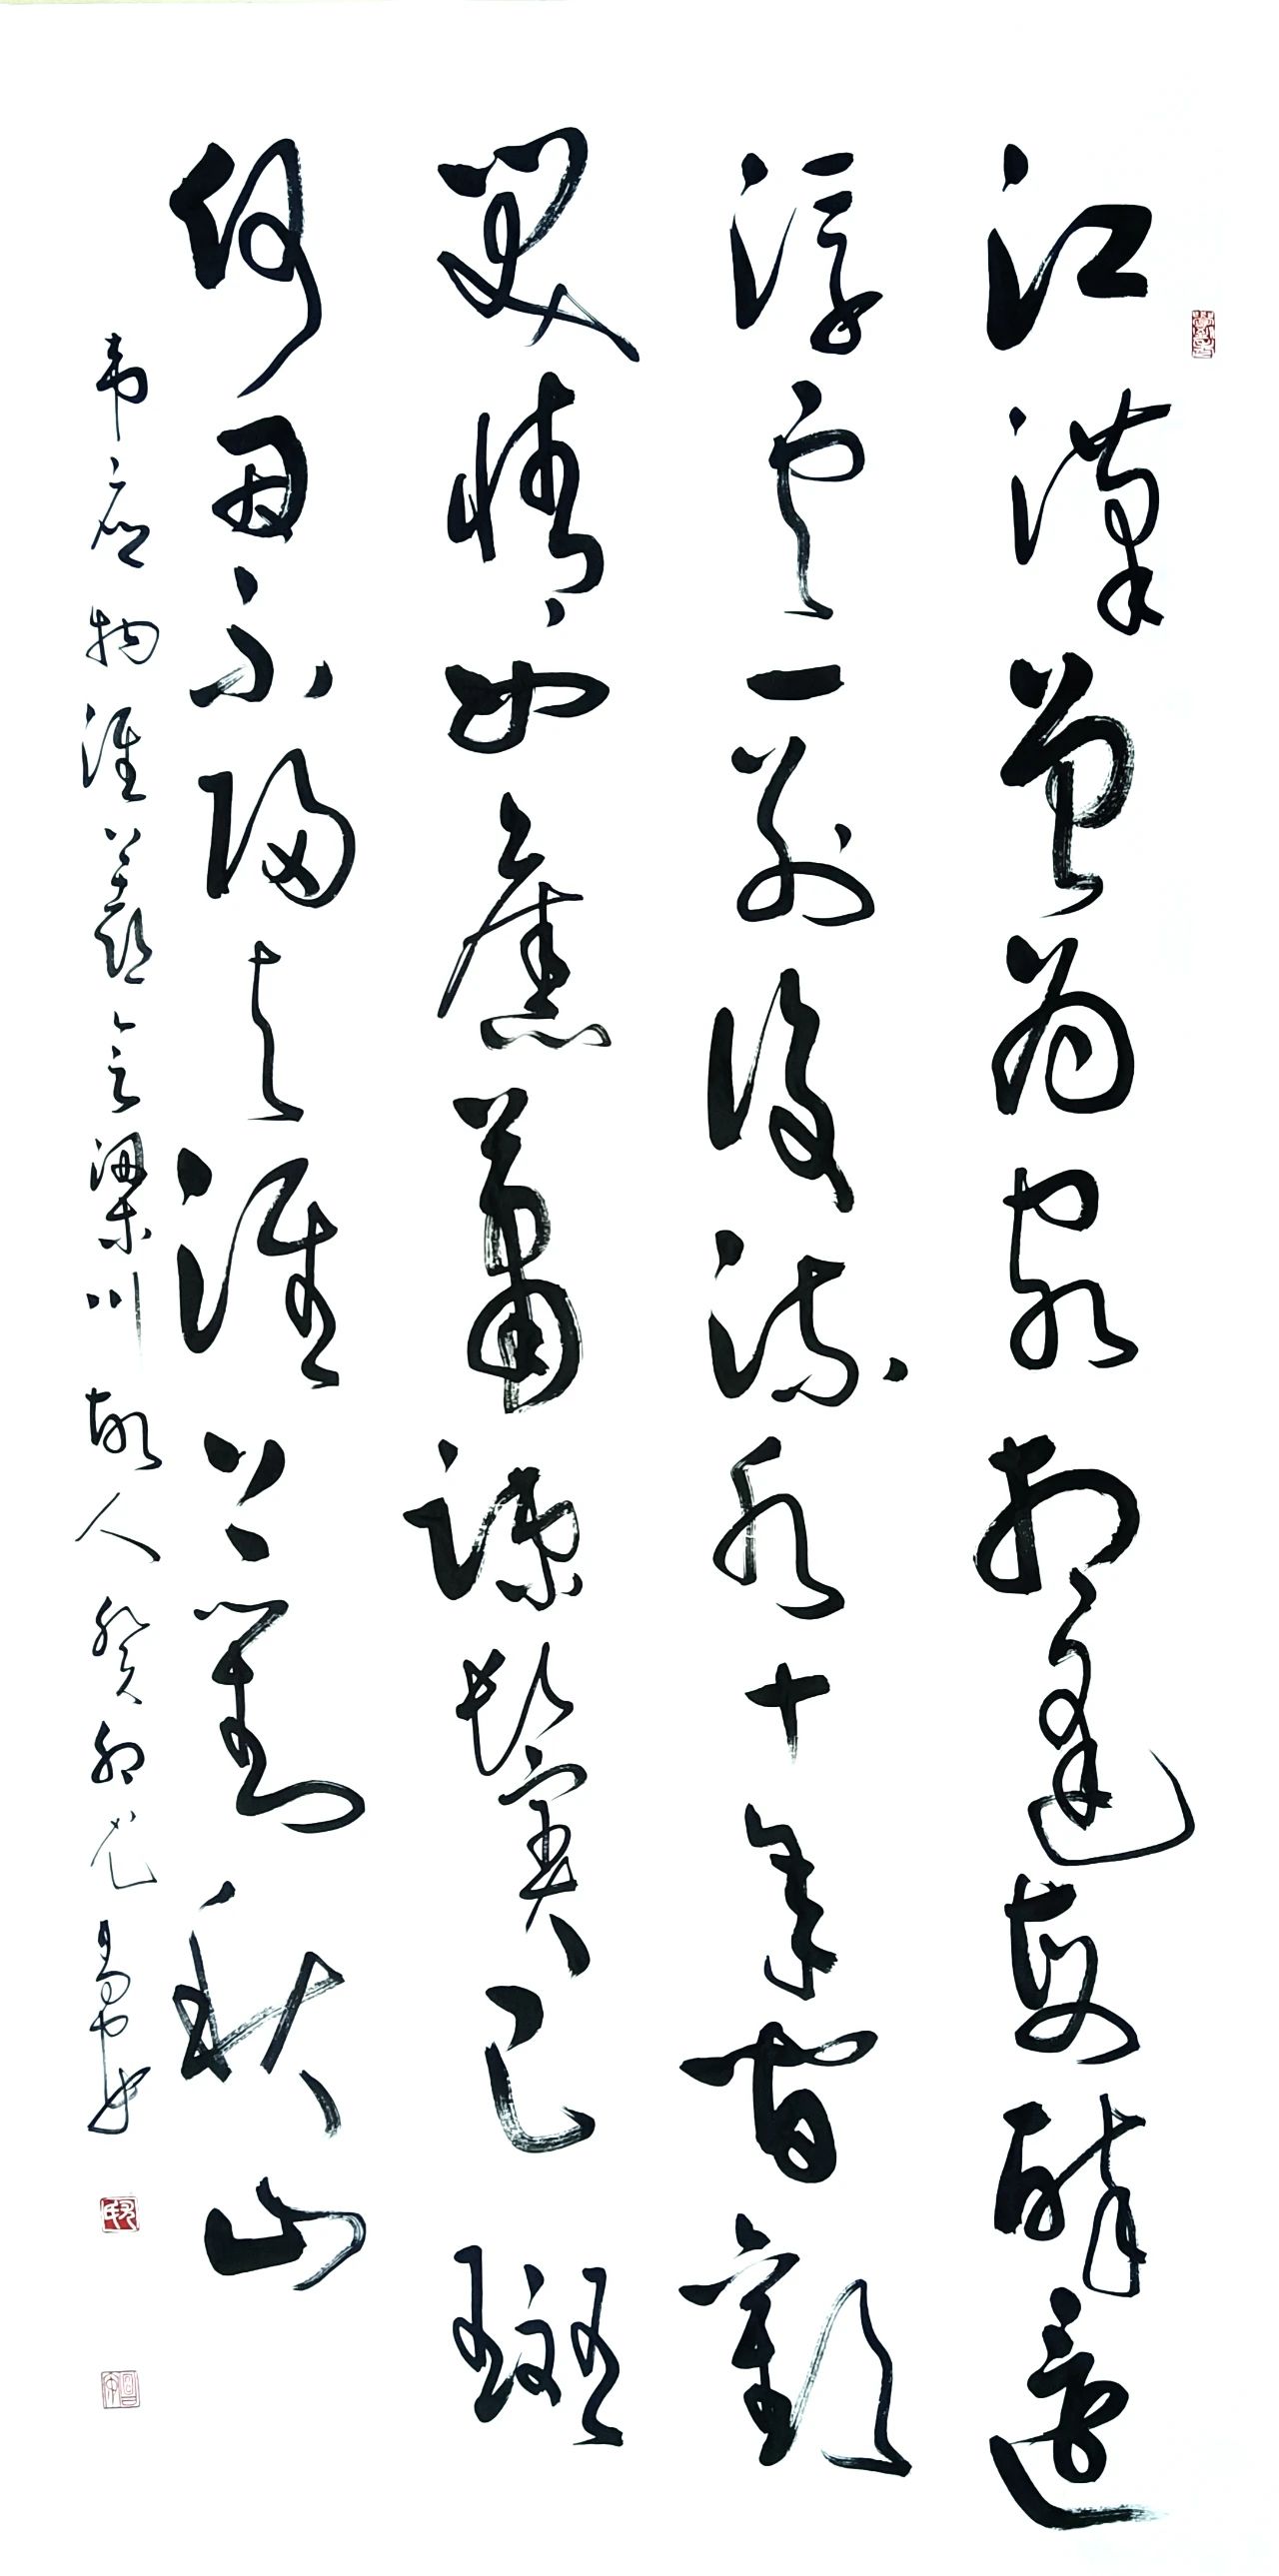 江漢曾為客相逢每醉還
浮雲一別後流水十年間歡
笑情如舊蕭疎鬢已斑
何因不歸去淮上對秋山
韦应物淮上喜會梁川故人癸卯尤昌安